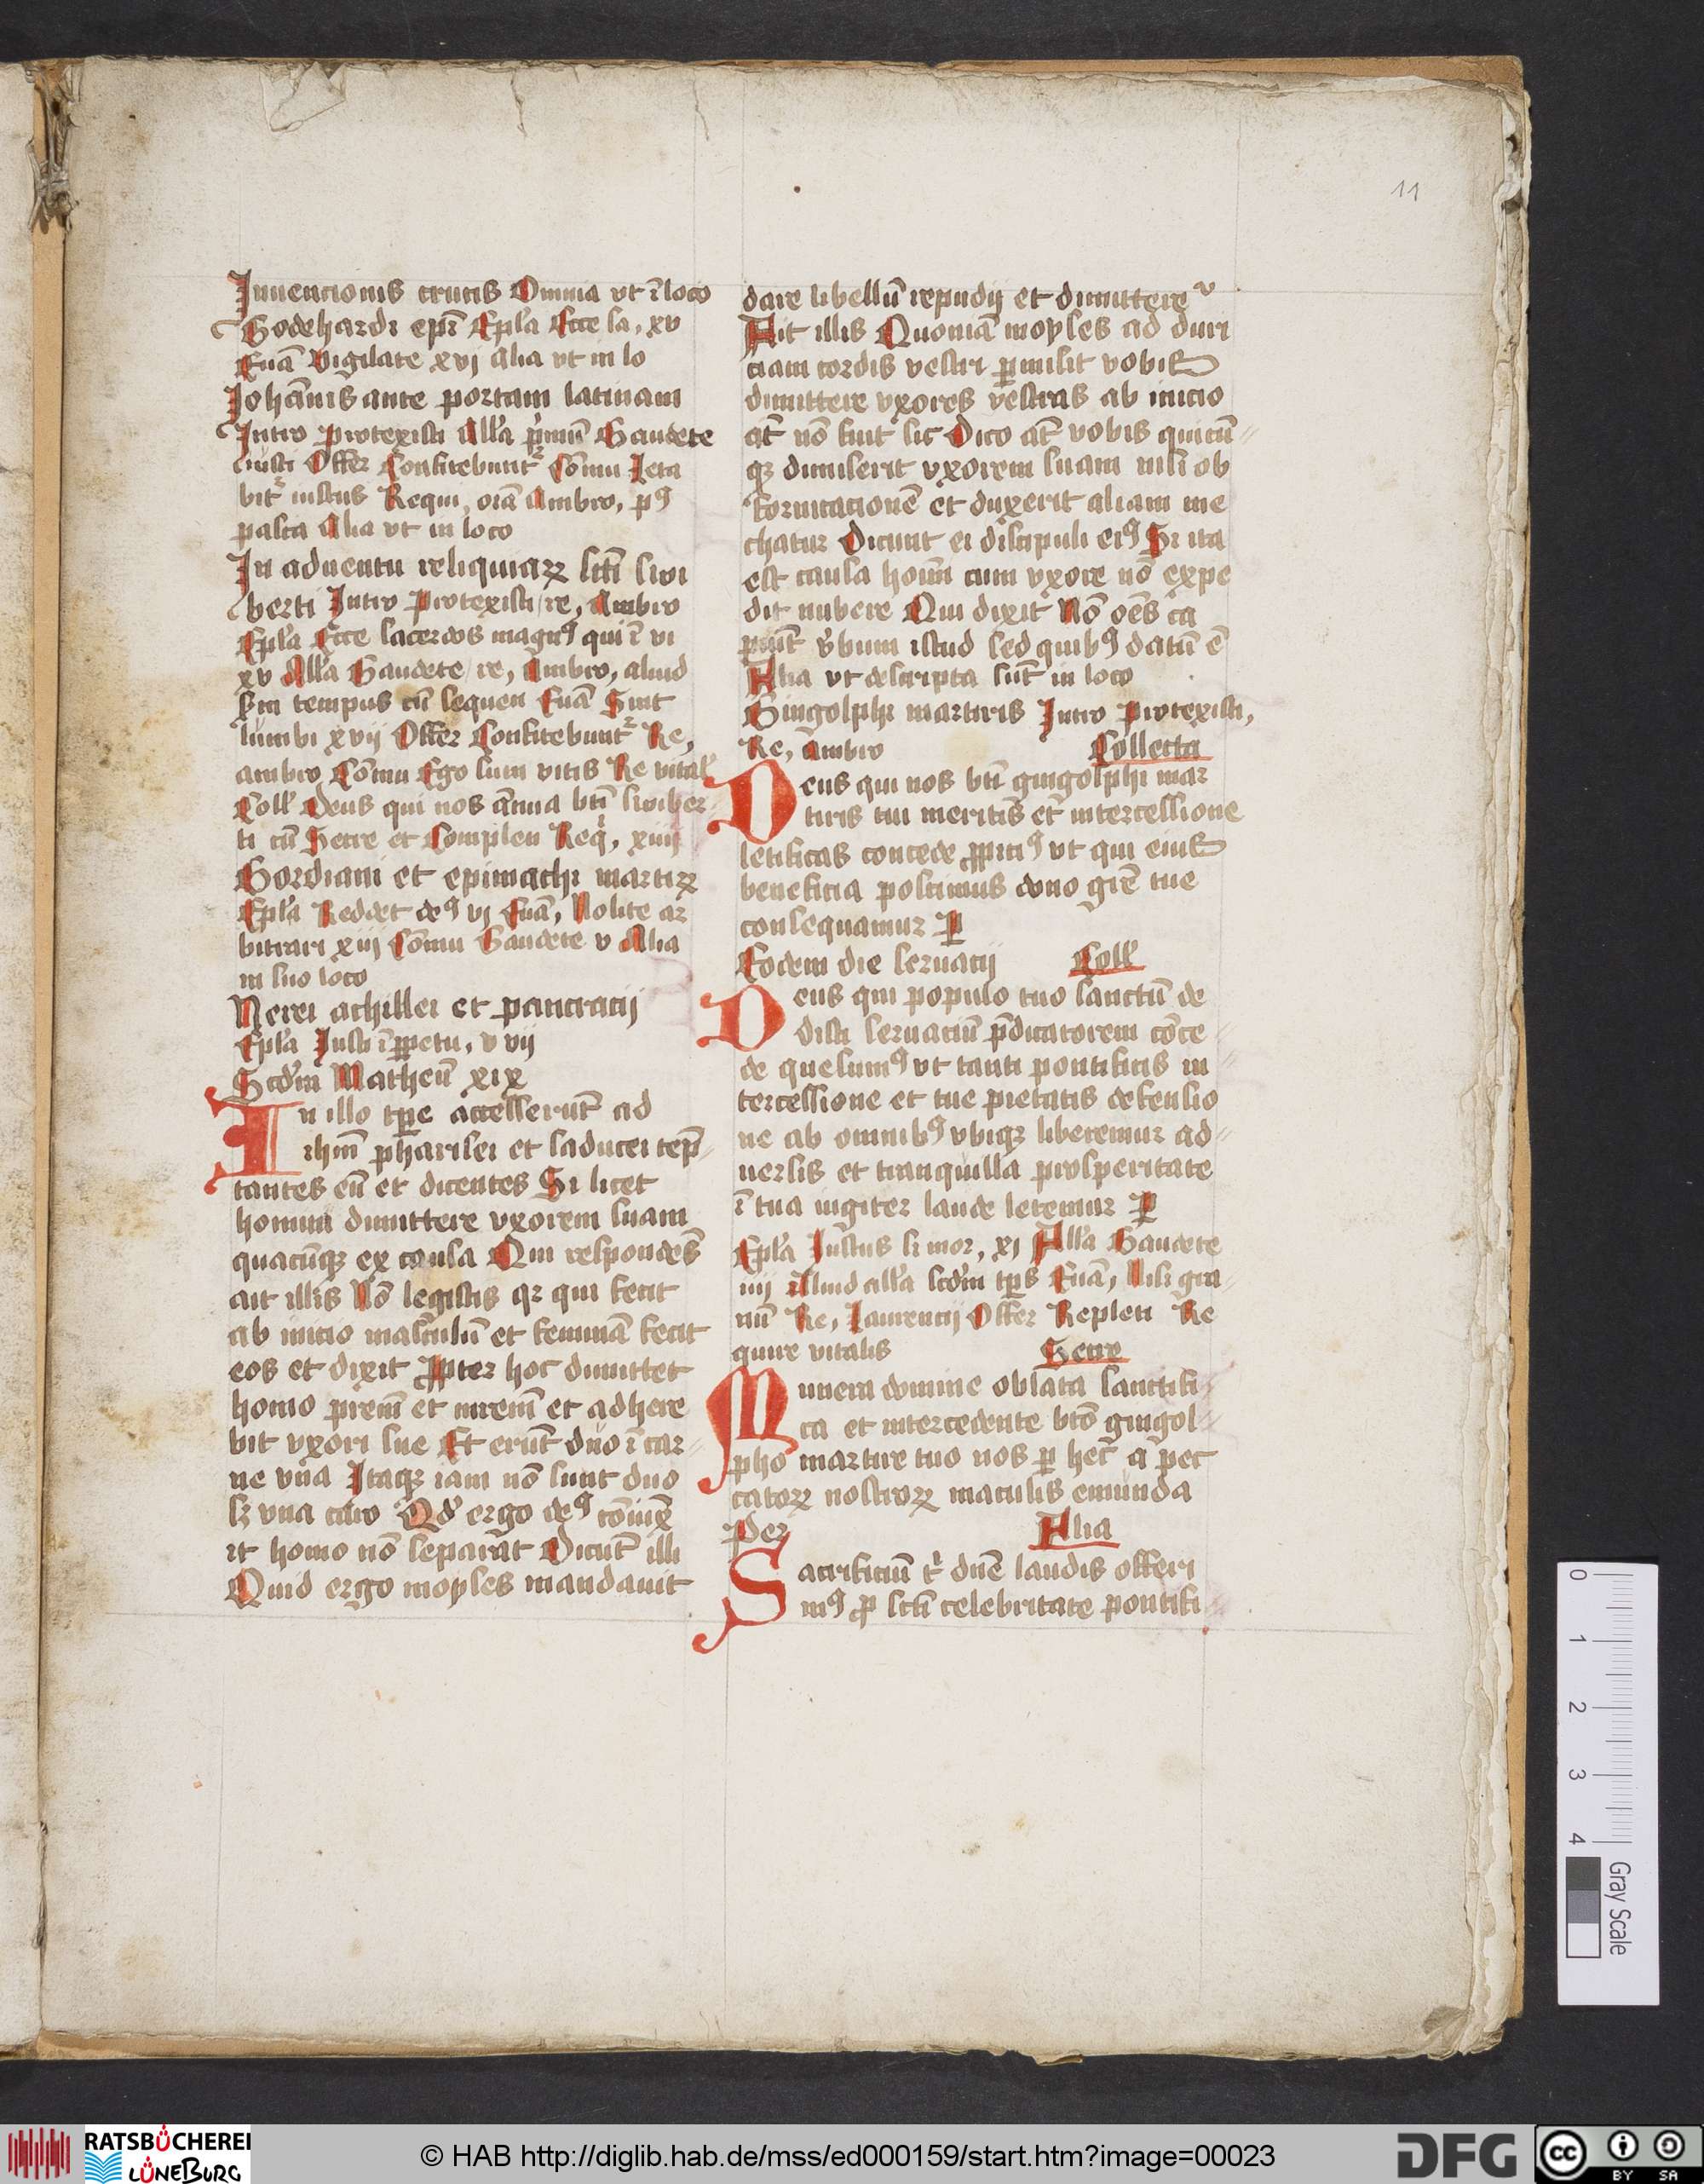 11
Inuencionis crucis Omnia vt ī loco
Godehardi epī Epl'a Ecce sa, xv
Euā Vigilate xvj Alia vt in lo
Johānis ante portam latinam
Intro Protexisti All'a p'mū Gaudete
iusti Offer Confitebunt᷑ Cōmu Leta
bit᷑ iustus Requi, orā Ambro, pꝰ
pasca Alia vt in loco
In aduentu reliquiaꝝ sctī swi
berti Intro Protexisti re, Ambro
Epl'a Ecce sacerdos magnꝰ qui ī vi
xv All'a Gaudete re, Ambro, aliud
scm tempus cū sequen Euā Sint
lumbi xvij Offer Confitebunt᷑ Re,
ambro Cōmu Ego sum vitis Re vital'
Coll' Deus qui nos ānua btī swiber
ti cū Secre et Complen Req, xiiij
Gordiani et epimachi martiꝝ
Epl'a Reddet deꝰ vj Euā, Nolite ar
bitrari xiij Cōmu Gaudete v Alia
in suo loco
Nerei achillei et pancracij
Epl'a Justi ī ꝑpetu, v vij
Scd'm Matheū xix
In illo tꝑe accesserūt ad
ihm̄ pharisei et saducei tep̄
tantes eū et dicentes Si licet
homini dimittere vxorem suam
quacūqꝫ ex causa Qui respondēs
ait illis Nō legistis qꝛ qui fecit
ab inicio masculū et feminā fecit
eos et dixit ꝓpter hoc dimittet
homo prem̄ et mrem̄ et adhere
bit vxori sue Et erūt duo ī car
ne vna Itaqꝫ iam nō sunt duo
sꝫ vna caro Qd' ergo deꝰ cōiūx
it homo nō separat Dicūt illi
Quid ergo moyses mandauit
dare libellū repudij et dimittere
Ait illis Quoniā moyses ad duri
ciam cordis vestri ꝑmisit vobis
dimittere vxores vestras ab inicio
at̄ nō fuit sic Dico at̄ vobis quicū
qꝫ dimiserit vxorem suam nisi ob
fornicacionē et duxerit aliam me
chatur Dicunt ei discipuli eiꝰ Si ita
est causa hoīm cum vxore nō expe
dit nubere Qui dixit Nō oēs ca
piūt v'bum istud sed quibꝰ datū ē
Alia vt descripta sūt in loco
Gingolphi martiris Intro Protexisti,
Re, Ambro Collecta
Deus qui nos btī gingolphi mar
tiris tui meritis et intercessione
letificas concede ꝓpiciꝰ vt qui eius
beneficia poscimus dono grē tue
consequamur ꝑ
Eodem die seruacij Coll'
Deus qui populo tuo sanctū de
disti seruaciū p̄dicatorem cōce
de quesumꝰ vt tanti pontificis in
tercessione et tue pietatis defensio
ne ab omnibꝰ vbiqꝫ liberemur ad
uersis et tranquilla prosperitate
ī tua iugiter laude letemur ꝑ
Epl'a Justus si mor, xj All'a Gaudete
iiij Aliud all'a scd'm tꝑs Euā, Nisi gra
nū Re, Laurencij Offer Repleti Re
quire vitalis Secre
Munera domine oblata sanctifi
ca et intercedente btō gingol
pho martire tuo nos ꝑ hec a pec
catoꝝ nostroꝝ maculis emunda
Per Alia
Sacrificiū t' dn̄e laudis offeri
mꝰ ꝓ sctī celebritate pontifi
0
1
2
3
4
Gray Scale
RATSBÜCHEREI
LÜNEBURG
© HAB http://diglib.hab.de/mss/ed000159/start.htm?image=00023
DFG
cc
BY SA